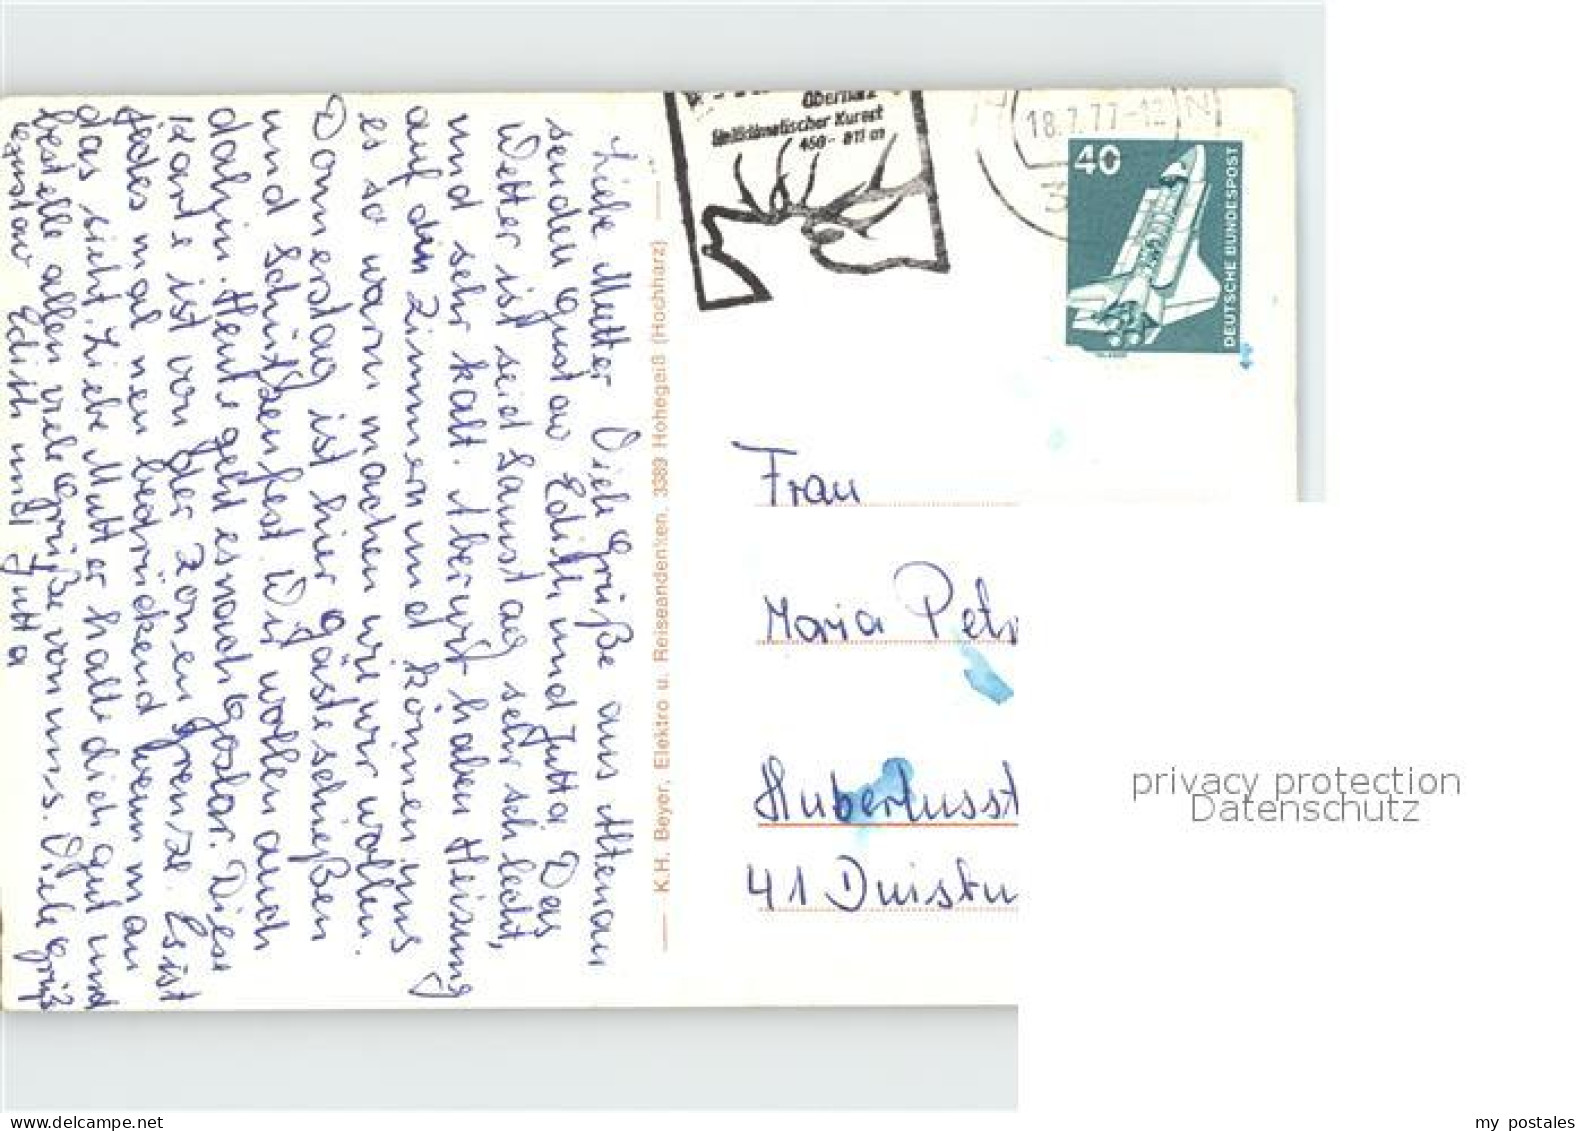 Liebe Mutter Viele Grüße aus Altenau
senden Gustav Edith und Jutta Das
Wetter ist seid Samstag sehr schlecht,
und sehr kalt. Aber wir haben Heizung
auf den Zimmern und können uns
es so warm machen wie wir wollen.
Donnerstag ist hier Gästeschießen
und Schützenfest. Wir wollen auch
dahin. Heute geht es nach Goslar. Diese
Karte ist von der Zonengrenze. Es ist
jedes mal nen bedrückend wenn man
das sieht. Liebe Mutter halte dich gut und
bestelle allen viele Grüße von uns. Viele Grüße
Gustav Edith und Jutta
K.H. Beyer, Elektro u. Reiseandenken, 3389 Hohegeiß (Hochharz)
Oberharz
Heilklimatischer Kurort
450 - 811 m
18.7.77-12
40
DEUTSCHE BUNDESPOST
Frau
Maria Petr
Hubertusst
41 Duisbu
privacy protection
Datenschutz
my postales